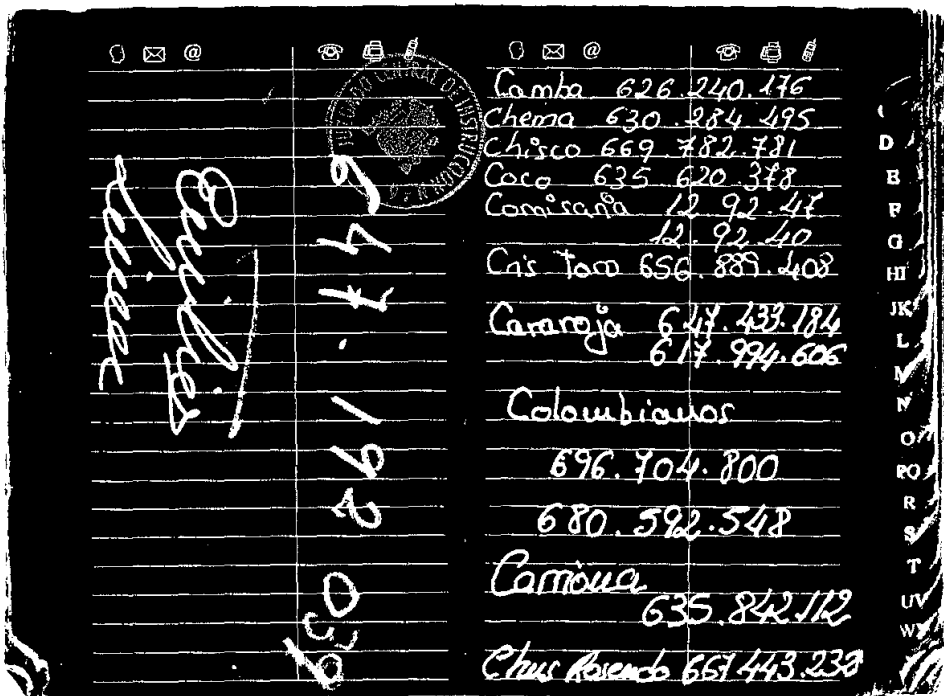 JUZGADO CENTRAL DE INSTRUCCION
647.192
@
@
Camba 626.240.176
Chema 630.284.495
Chisco 669.782.781
Coco 635 620.378
Comisaria 12 92.47
12.92.40
Cris Toro 656.889.408
Cararoja 647.433.184
617.994.606
Colombianos
696.704.800
680.592.548
Carmona
635.842.112
Chus Rosendo 667 443.238
D
E
F
G
HI
JK
L
M
N
O
PQ
R
S
T
UV
W